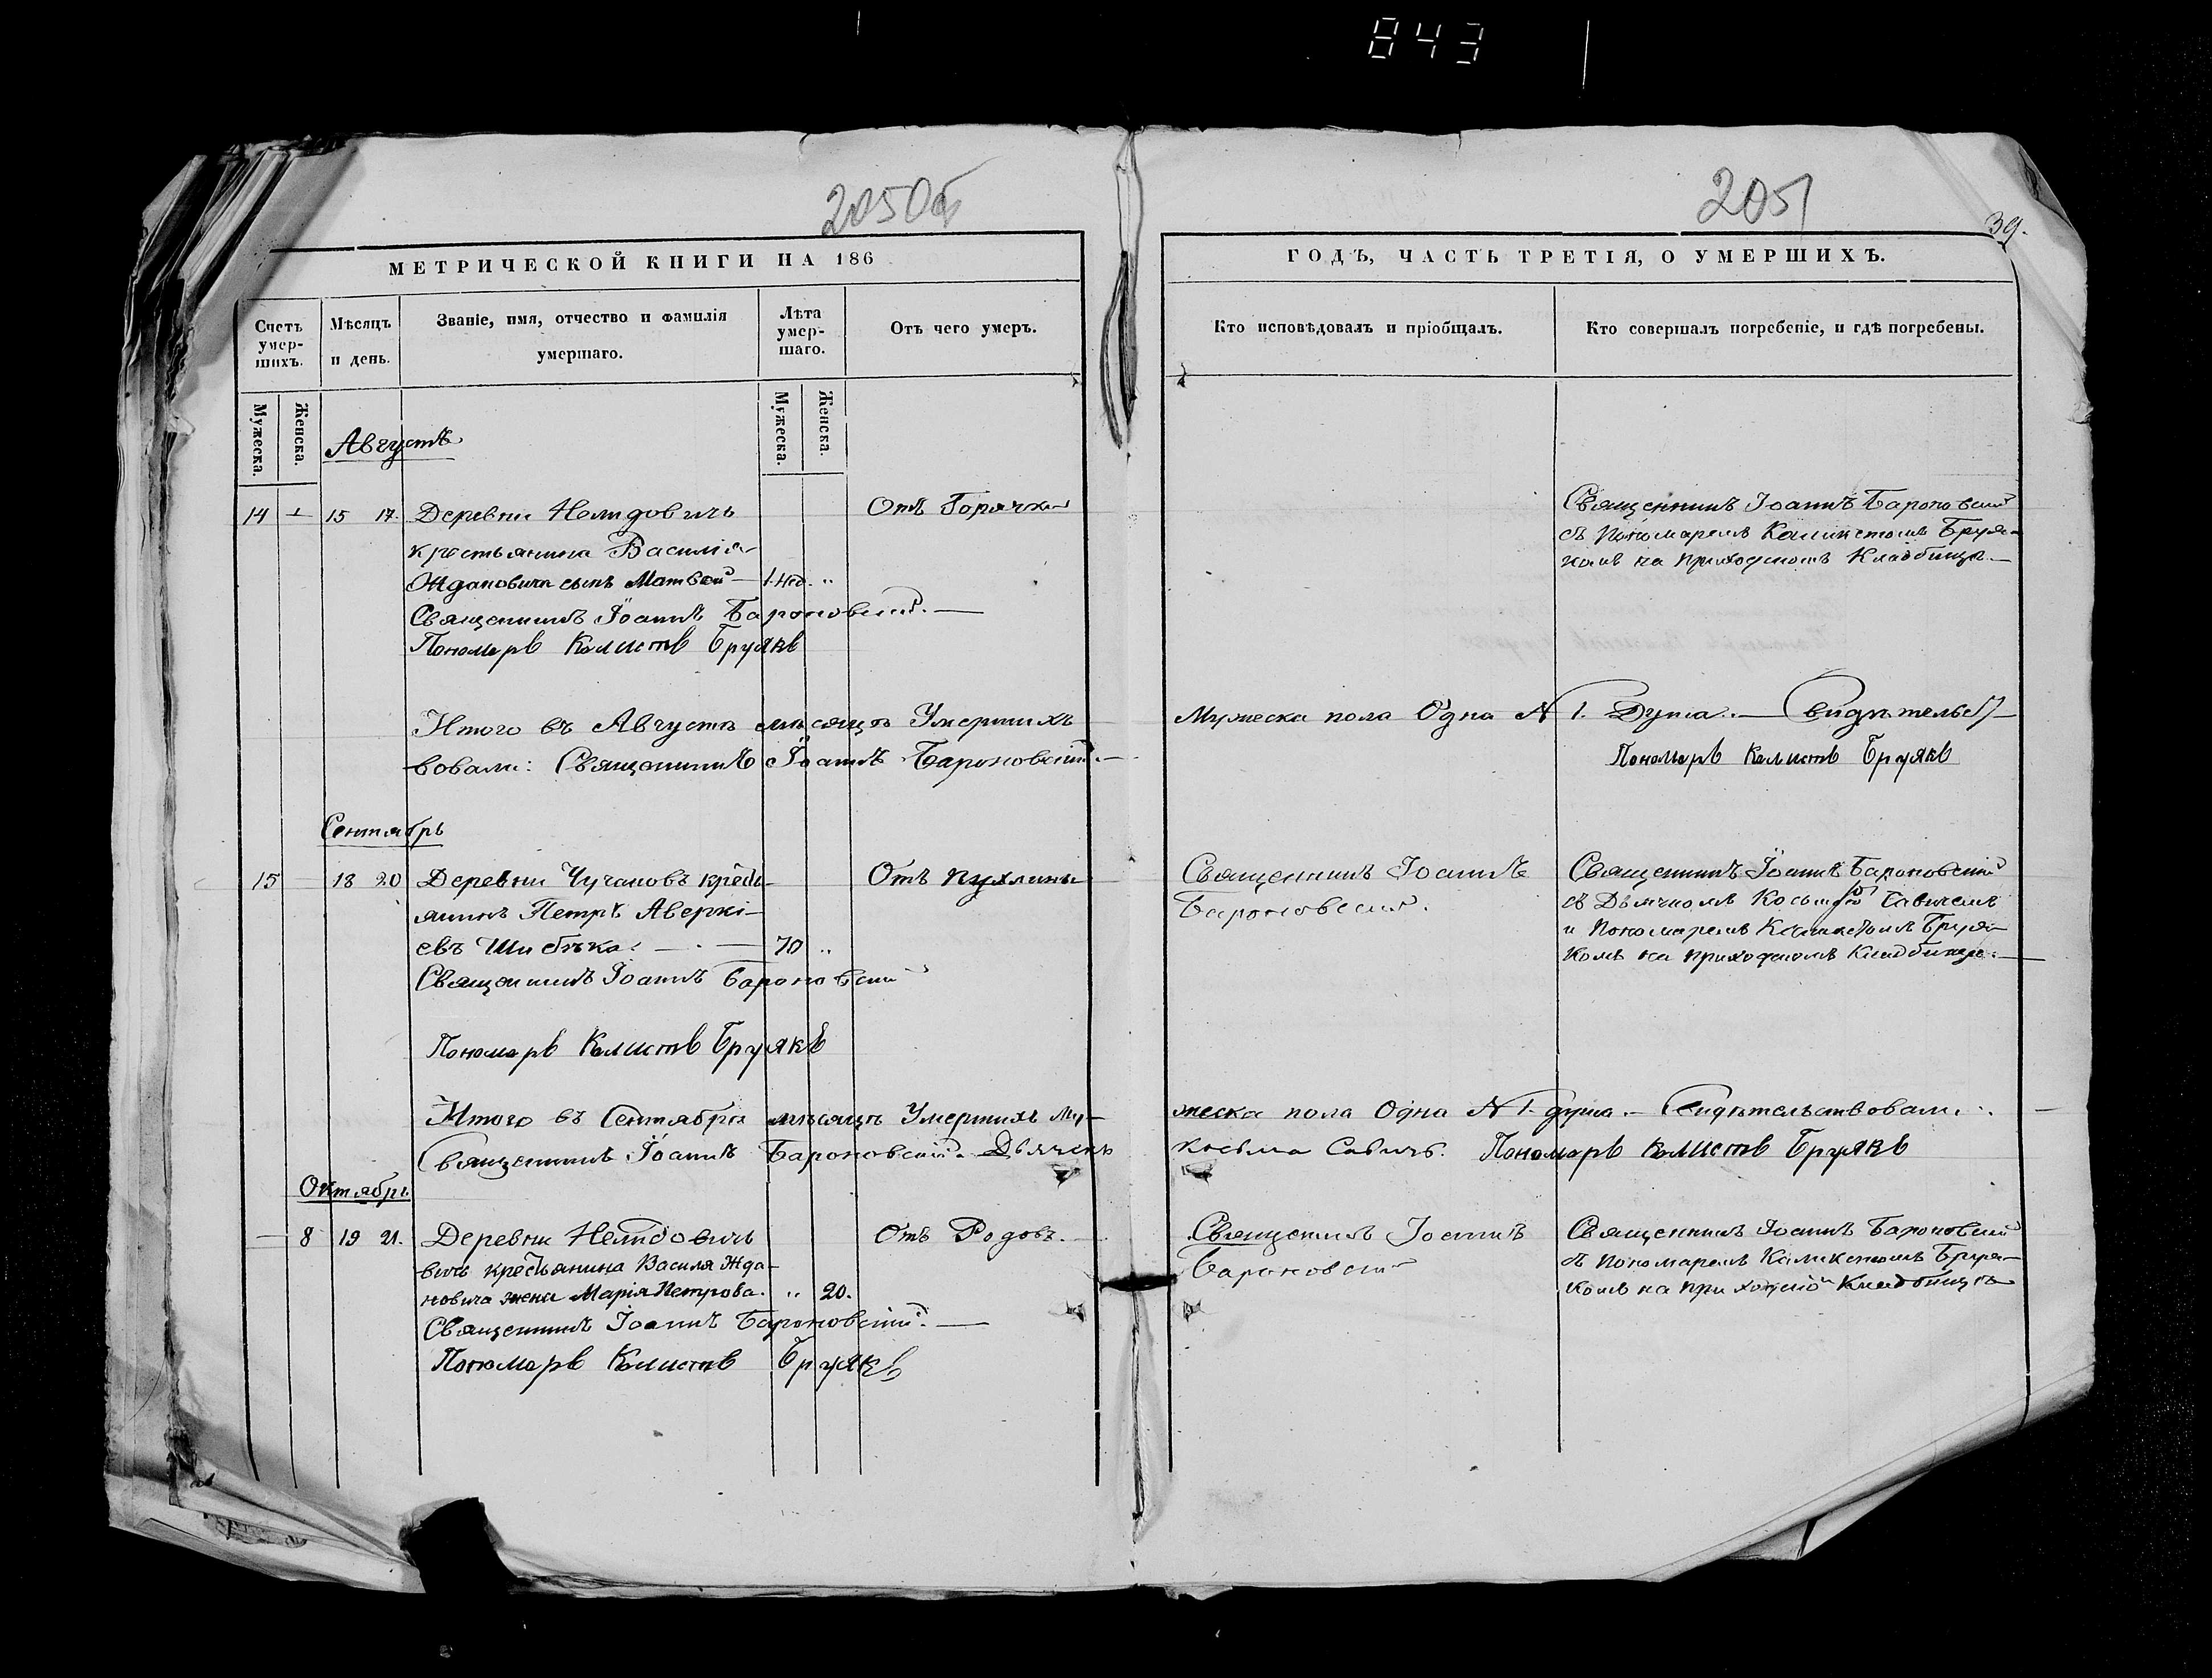 843
205об
205
39.
МЕТРИЧЕСКОЙ КНИГИ НА 186
ГОДЪ, ЧАСТЬ ТРЕТІЯ, О УМЕРШИХЪ.
Счетъ умер-шихъ.
Мѣсяцъ и день.
Званіе, имя, отчество и фамилія умершаго.
Лѣта умер-шаго.
Отъ чего умеръ.
Кто исповѣдовалъ и пріобщалъ.
Кто совершалъ погребеніе, и гдѣ погребены.
Мужеска.
Женска.
Мужеска.
Женска.
Августъ
14 15 17. Деревни Нелидовичъ
Отъ Горячки
крестьянина Василія
Ждановича сынъ Матвей — 1. нед. „
Священникъ Іоаннъ Бароновскій. —
Пономарь Калистъ Брулякъ
Священникъ Іоаннъ Бароновскій
съ Пономаремъ Каликстомъ Бруля-
комъ на приходскомъ Кладбищѣ. —
Итого въ Августѣ мѣсяцѣ Умершихъ
Мужеска пола Одна № 1. Душа. — Свидѣтельст-
вовали: Священникъ Іоаннъ Бароновскій. —
Пономарь Калистъ Брулякъ
Сентябрь
15 — 18 20 Деревни Чучановъ кресть-
Отъ пухлины
янинъ Петръ Аверкі-
евъ Шибѣка. — 70 „
Священникъ Іоаннъ Бароновскій
Пономарь Калистъ Брулякъ
Священникъ Іоаннъ
Бароновскій.
Священникъ Іоаннъ Бароновскій
съ Дьячкомъ Косьмою Савичемъ
и Пономаремъ Каликстомъ Бруля-
комъ на приходскомъ Кладбищѣ. —
Итого въ Сентябрѣ мѣсяцѣ Умершихъ Му-
жеска пола Одна № 1. душа. — Свидѣтельствовали:
Священникъ Іоаннъ Бароновскій. Дьячекъ
Косьма Савичъ. Пономарь Калистъ Брулякъ
Октябрь
— 8 19 21. Деревни Нелидовичъ
Отъ Родовъ. —
вичъ крестьянина Василя Жда-
новича жена Марія Петрова. „ 20.
Священникъ Іоаннъ Бароновскій. —
Пономарь Калистъ Брулякъ
Священникъ Іоаннъ
Бароновскій
Священникъ Іоаннъ Бароновскій
съ Пономаремъ Каликстомъ Бруля-
комъ на приходскомъ Кладбищѣ